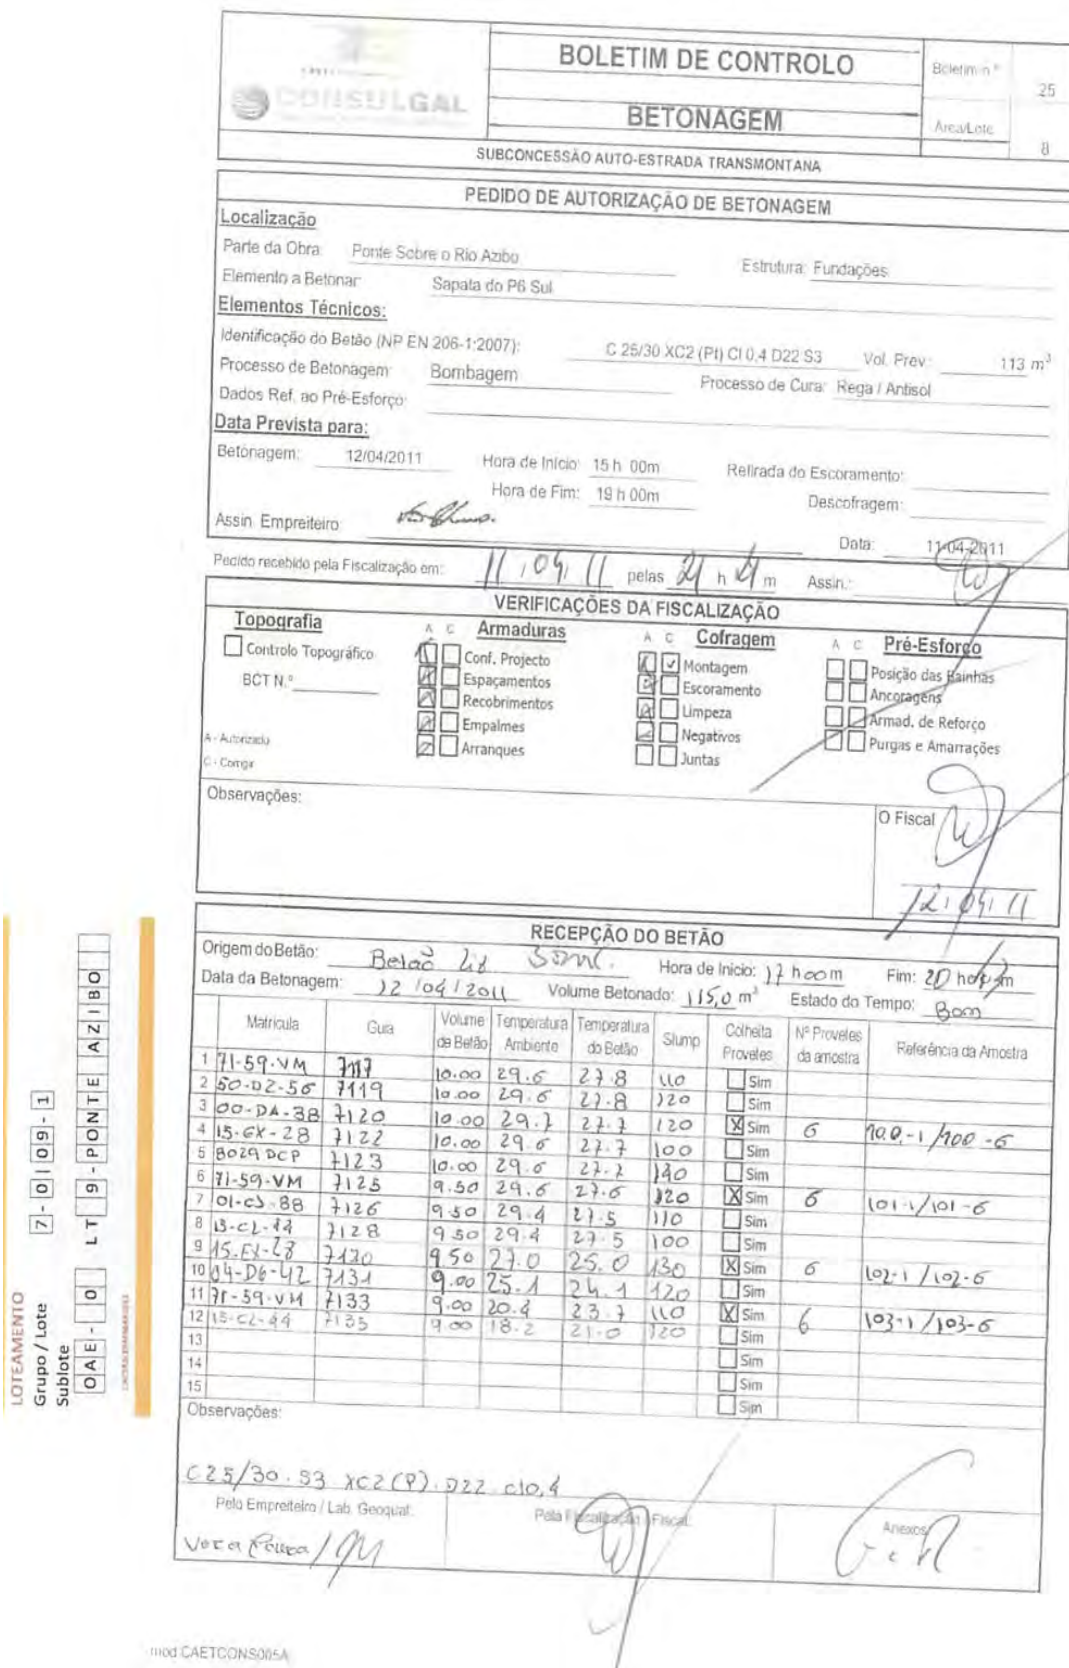 CONSULGAL
BOLETIM DE CONTROLO
BETONAGEM
Boletim n.º 25
Área/Lote 8
SUBCONCESSÃO AUTO-ESTRADA TRANSMONTANA
PEDIDO DE AUTORIZAÇÃO DE BETONAGEM
Localização
Parte da Obra: Ponte Sobre o Rio Azibo Estrutura: Fundações
Elemento a Betonar: Sapata do P6 Sul
Elementos Técnicos:
Identificação do Betão (NP EN 206-1:2007): C 25/30 XC2 (Pt) Cl 0,4 D22 S3 Vol. Prev.: 113 m³
Processo de Betonagem: Bombagem Processo de Cura: Rega / Antisol
Dados Ref. ao Pré-Esforço:
Data Prevista para:
Betonagem: 12/04/2011 Hora de Início: 15 h 00m Retirada do Escoramento:
Hora de Fim: 19 h 00m Descofragem:
Assin. Empreiteiro: Data: 11-04-2011
Pedido recebido pela Fiscalização em: 11, 04, 11 pelas h m Assin.:
VERIFICAÇÕES DA FISCALIZAÇÃO
Topografia A C Armaduras A C Cofragem A C Pré-Esforço
Controlo Topográfico Conf. Projecto Montagem Posição das Bainhas
BCT N.º Espaçamentos Escoramento Ancoragens
Recobrimentos Limpeza Armad. de Reforço
A - Autorizado Empalmes Negativos Purgas e Amarrações
C - Corrigir Arranques Juntas
Observações:
O Fiscal
12, 04, 11
RECEPÇÃO DO BETÃO
Origem do Betão: Betão Liz Hora de Inicio: 17 h 00 m Fim: 20 h m
Data da Betonagem: 12 / 04 / 2011 Volume Betonado: 115,0 m³ Estado do Tempo: Bom
Matricula Guia Volume de Betão Temperatura Ambiente Temperatura do Betão Slump Colheita Proveles Nº Proveles da amostra Referência da Amostra
1 71-59-VM 7117 10.00 29.6 27.8 110 Sim
2 50-DZ-56 7119 10.00 29.6 27.8 120 Sim
3 00-DA-38 7120 10.00 29.7 27.7 120 X Sim 6 100-1/100-6
4 15-GX-28 7122 10.00 29.6 27.7 100 Sim
5 8029 DCP 7123 10.00 29.6 27.2 140 Sim
6 71-59-VM 7125 9.50 29.6 27.6 120 X Sim 6 101-1/101-6
7 01-CJ-88 7126 9.50 29.4 27.5 110 Sim
8 15-CL-44 7128 9.50 29.4 27.5 100 Sim
9 15-EX-28 7130 9.50 27.0 25.0 130 X Sim 6 102-1/102-6
10 04-D6-42 7131 9.00 25.1 24.1 120 Sim
11 71-59-VM 7133 9.00 20.4 23.7 110 X Sim 6 103-1/103-6
12 15-CL-44 7135 9.00 18.2 21.0 120 Sim
13 Sim
14 Sim
15 Sim
Observações:
C25/30. S3 XC2(P). D22 Cl0,4
Pelo Empreiteiro / Lab. Geoqual: Pela Fiscalização / Fiscal: Anexos
mod.CAETCONS005A
LOTEAMENTO
Grupo / Lote 7-0109-1
Sublote
OAE-0 LT9-PONTE AZIBO